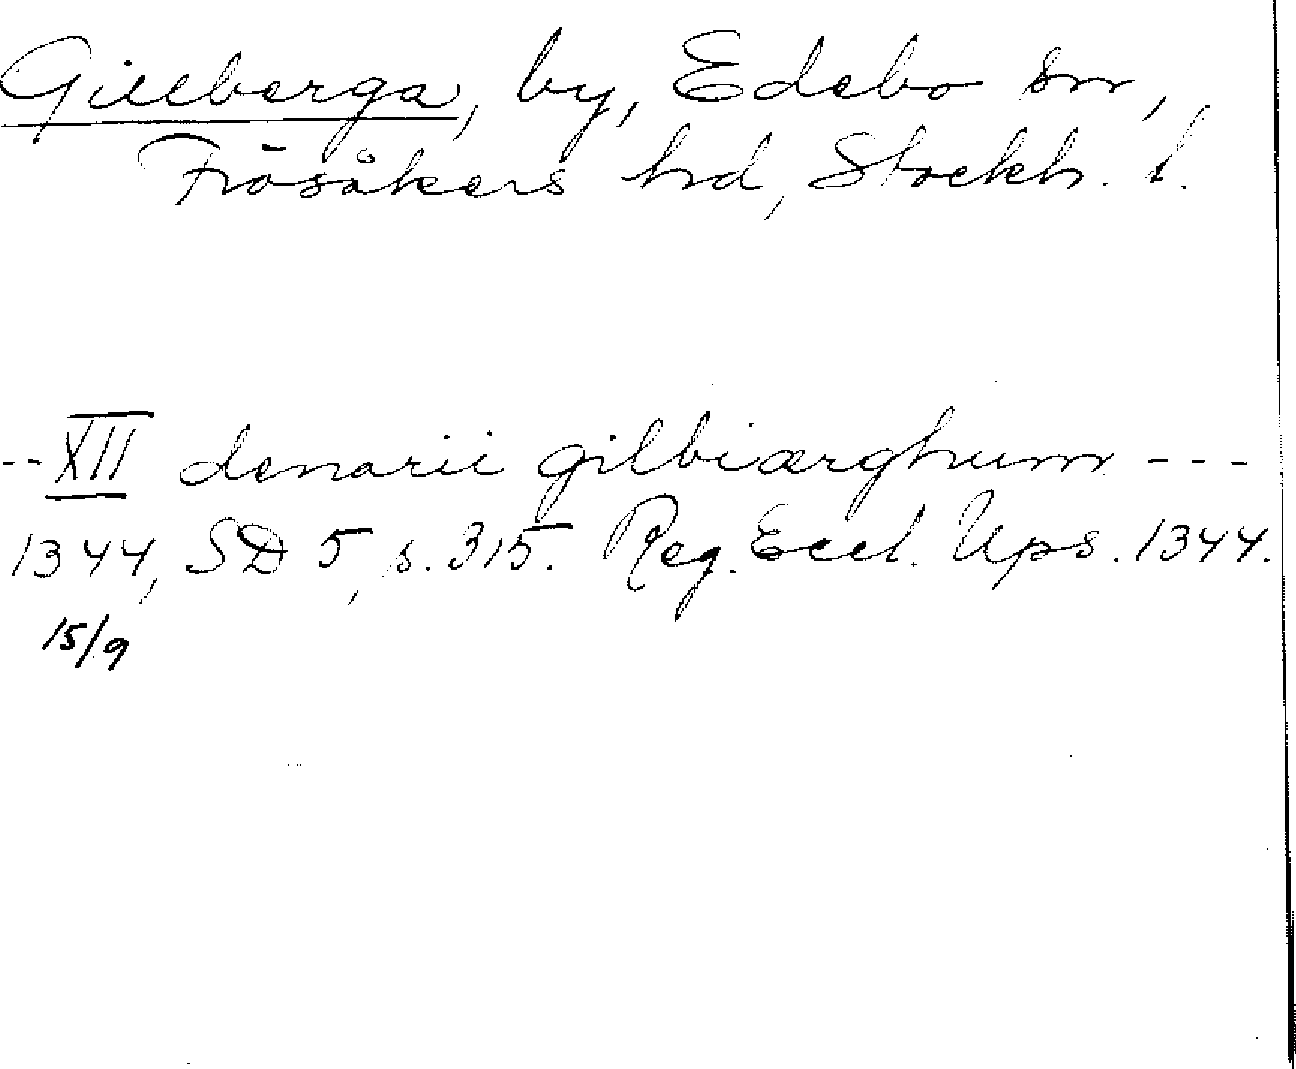 Gillberga, by, Edebo sn,
Frösåkers hd, Stockh. l.
-- XII denarii gilbiærghum ---
1344, SD 5, s. 315. Reg. Eccl. Ups. 1344.
15/9